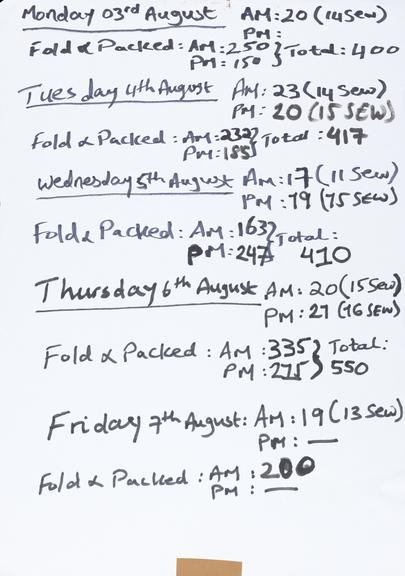 Monday 03rd August AM:20 (14 Sew)
PM:
Fold & Packed: AM:250 } Total: 400
PM: 150
Tuesday 4th August AM: 23 (14 Sew)
PM: 20 (15 SEW)
Fold & Packed: AM:232 } Total: 417
PM:185
Wednesday 5th August AM: 17 (11 Sew)
PM: 19 (15 SEW)
Fold & Packed: AM:163 } Total:
PM:247 410
Thursday 6th August AM: 20 (15 Sew)
PM: 21 (16 SEW)
Fold & Packed: AM:335 } Total:
PM:275 550
Friday 7th August: AM:19 (13 Sew)
PM: —
Fold & Packed: AM:200
PM: —